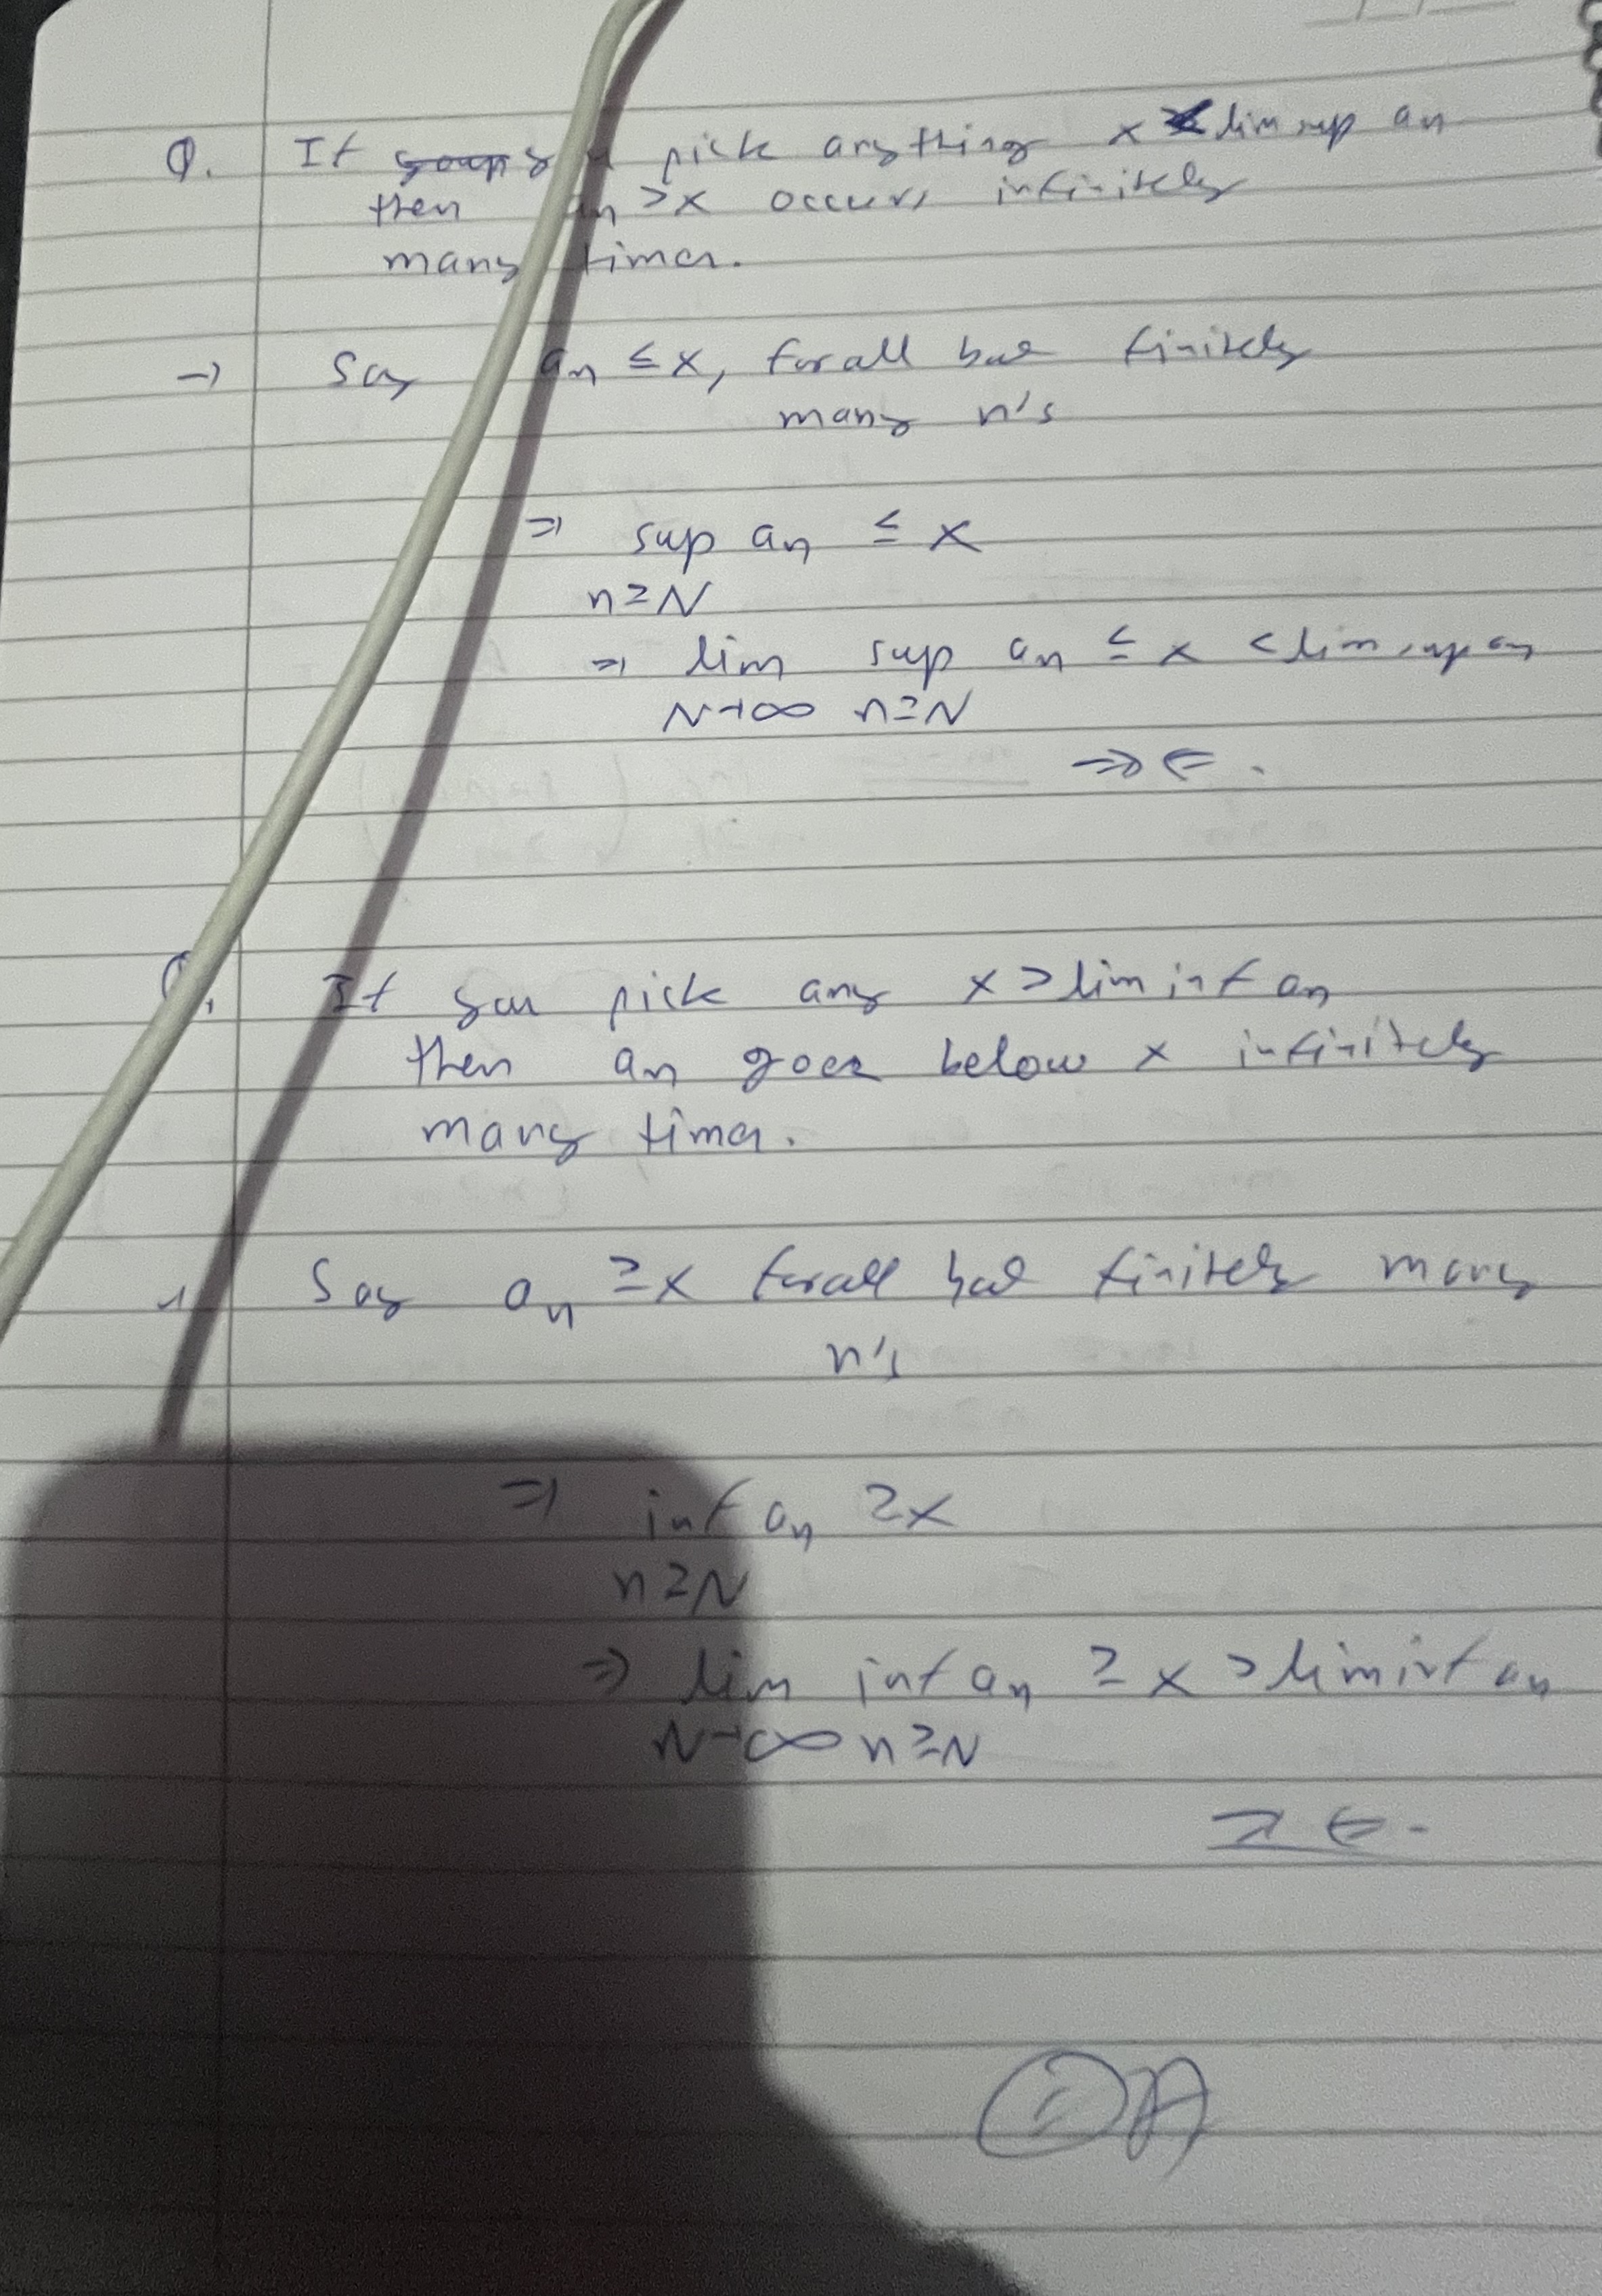 Q. If you pick anything x < lim sup an
then an >x occurs infinitely
many times.
→ Say an ≤ x, for all but finitely
many n's
⇒ sup an ≤ x
n≥N
⇒ lim sup an ≤ x < lim sup an
N→∞ n≥N
⇒⇐.
Q. If you pick any x > lim inf an
then an goes below x infinitely
many times.
→ Say an ≥x for all but finitely many
n's
⇒ inf an ≥x
n≥N
⇒ lim inf an ≥ x > lim inf an
N→∞ n≥N
⇒⇐.